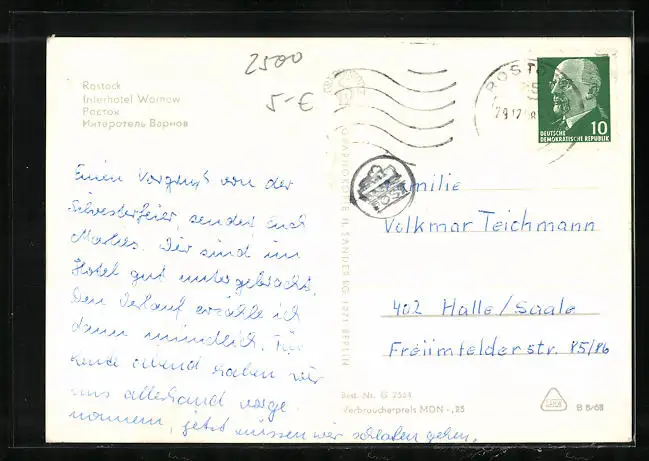 Rostock
Interhotel Warnow
Росток
Интеротель Варнов
2500
5-€
ROSTO
29.12.
DEUTSCHE
DEMOKRATISCHE REPUBLIK
10
Einen Vorgruß von der
Silvesterfeier, sendet Euch
Wir sind im
Hotel gut untergebracht.
Den Verlauf erzähle ich
dann mündlich. Für
heute abend haben wir
uns allerhand vorge-
nommen, jetzt müssen wir schlafen gehen.
Familie
Volkmar Teichmann
402 Halle/Saale
Freiimfelderstr. 85/86
H. SANDER KG 1071 BERLIN
Best. Nr. G 2564
Verbraucherpreis MDN -,25
B 8/68